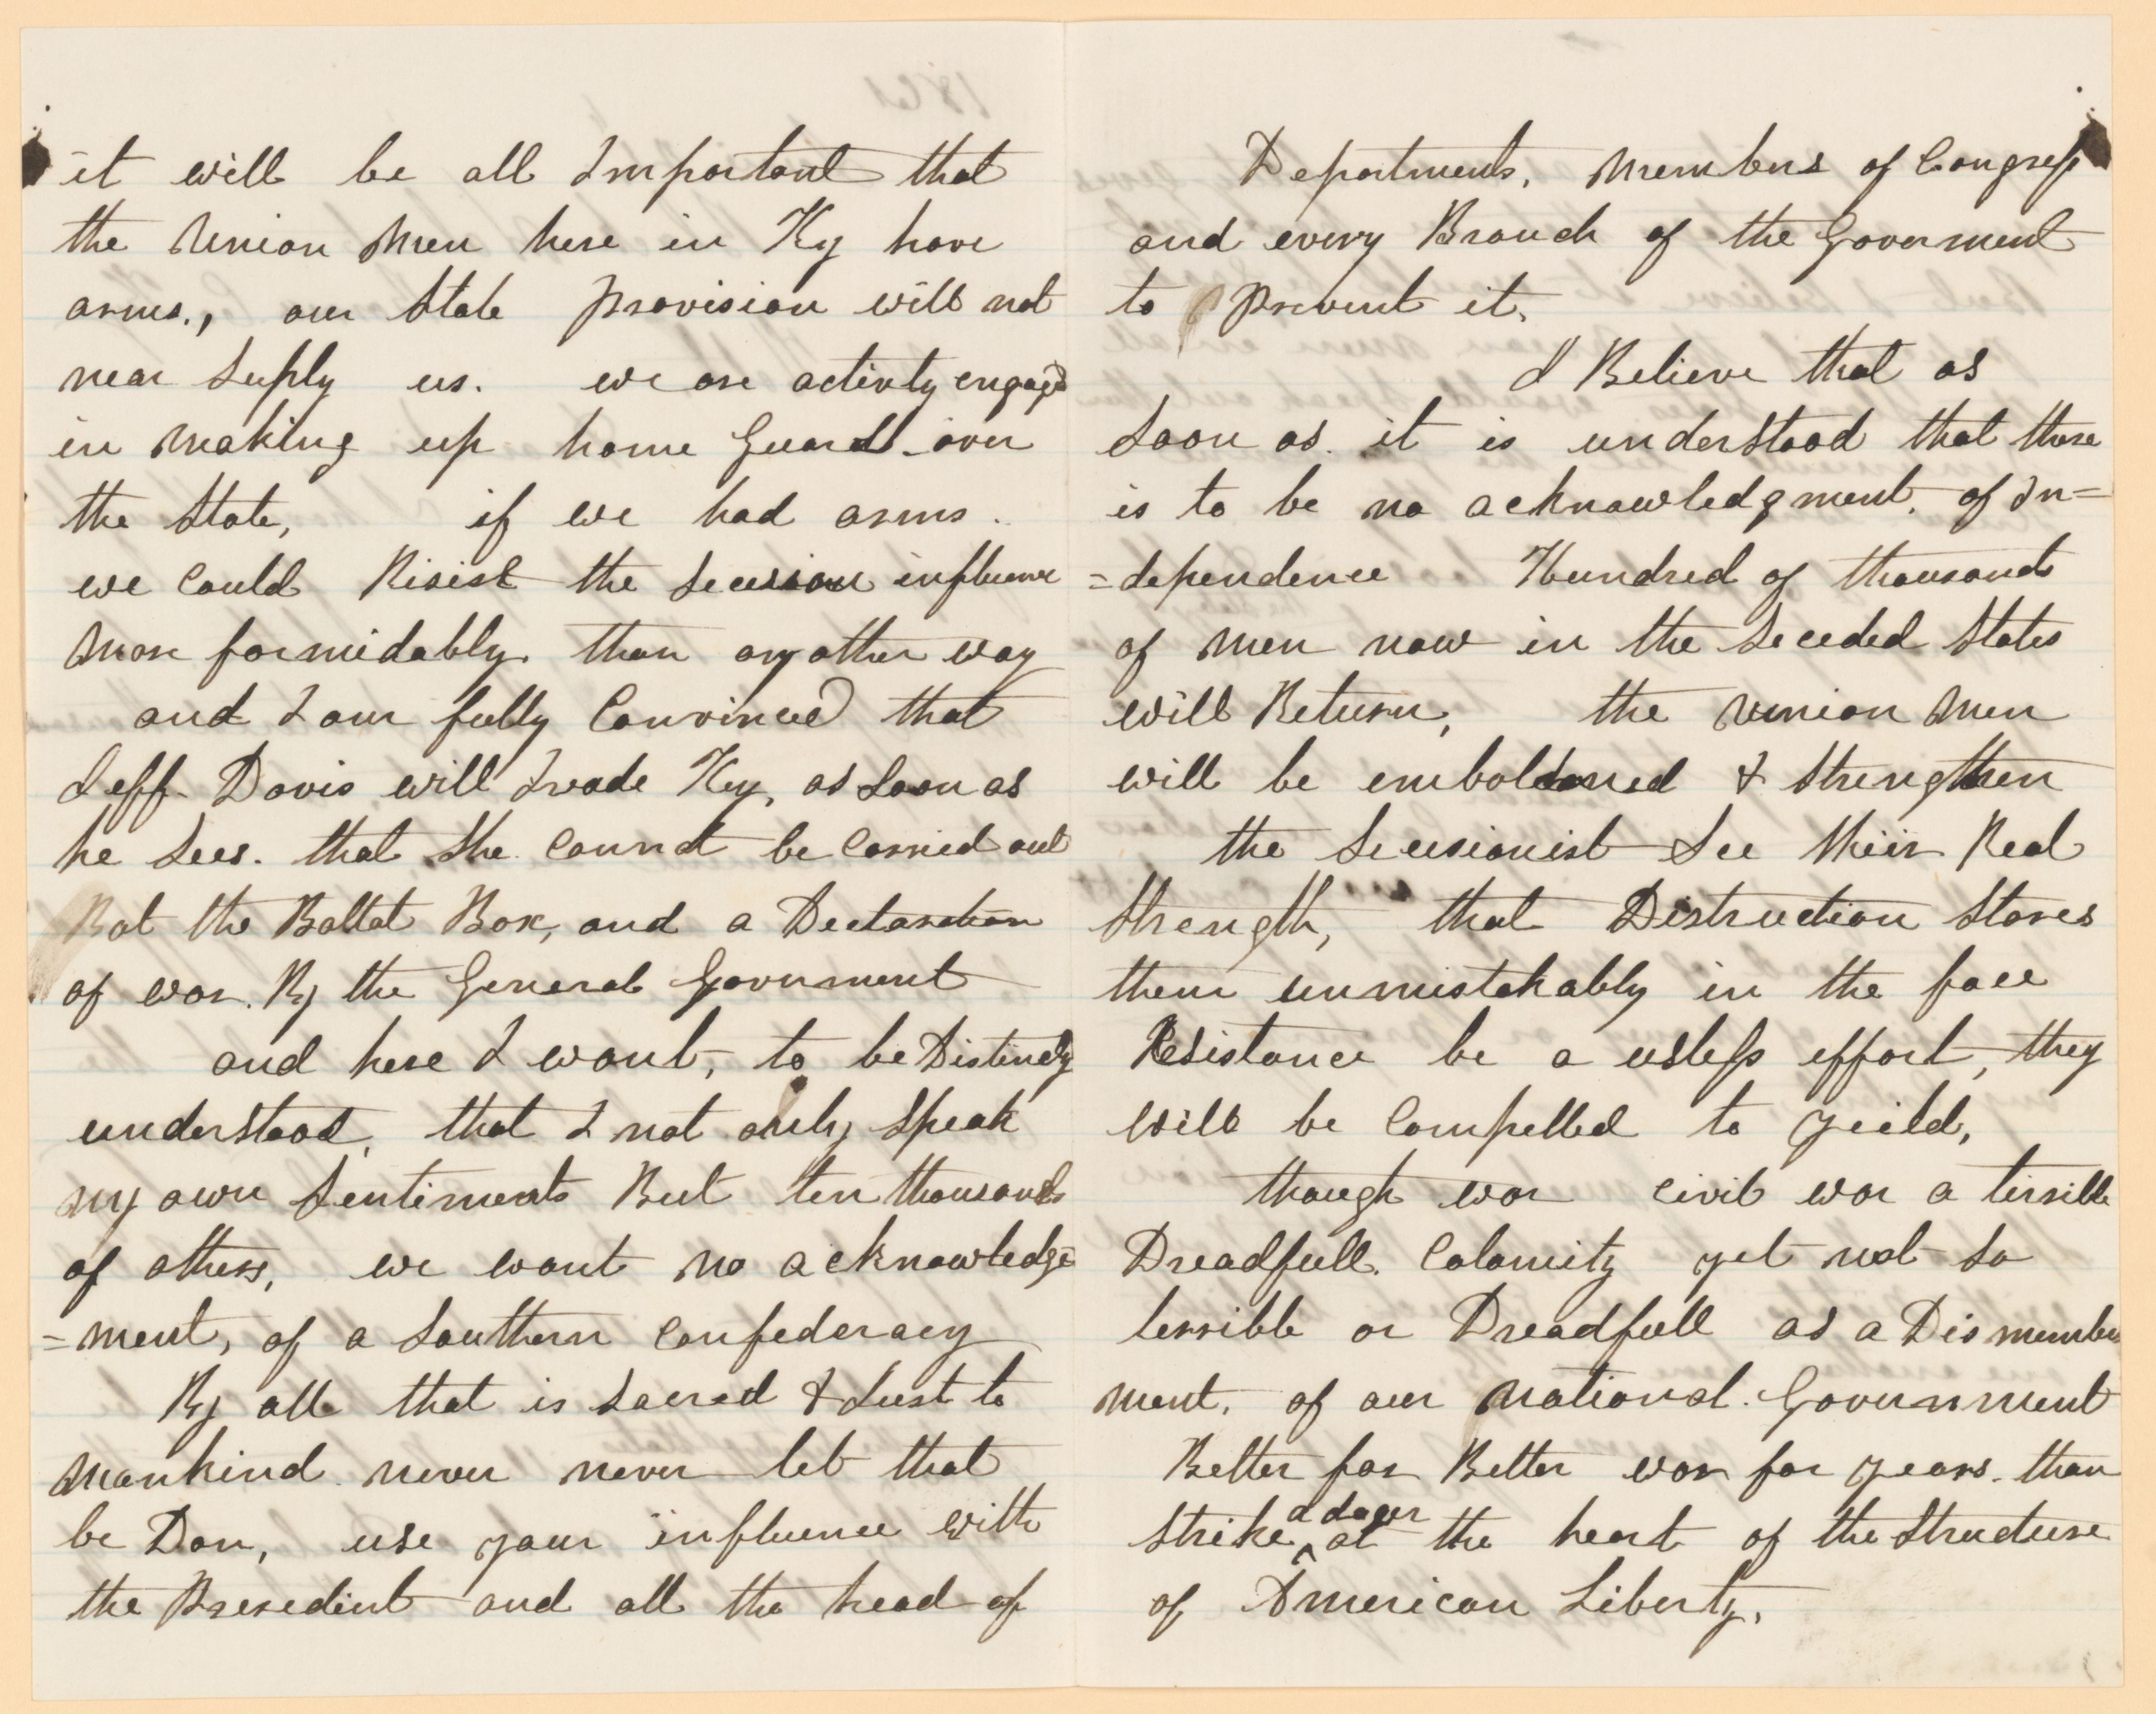 it will be all Important that
the Union Men here in Ky have
arms., our State provision will not
near Suply us. we are activly engaged
in Making up home Guard over
the State, if we had arms.
we Could Risist the Secession influence
More formidably. than any other way
and I am fully Convinced that
Jeff Davis will Ivade Ky, as Soon as
he Sees. that She Cannot be Carried out
Bat the Ballat Box, and a Declaration
of war. By the General Government
and here I want, to be Distinctly
understood, that I not only Speak
my own Sentiments But ten thousands
of others, we want No acknowledge
=ment, of a Southern Confederacy
By all that is Sacred & Just to
Mankind never never let that
be Don, use your influence with
the Presedint and all the head of
1861
Departments, Members of Congress
and every Branch of the Goverment
to Prevent it.
I Believe that as
Soon as it is understood that there
is to be no acknowledgment, of In=
=dependence Hundred of thousands
of Men now in the Seceded States
will Return, the Union Men
will be emboldened & Strengthen
the Secesionist See their Real
Strength, that Distruction Stares
them unmistakably in the face
Resistance be a usless effort, they
will be Compelled to yeild,
though war civil war a terrible
Dreadfull. Calamity yet not So
terrible or Dreadfull as a Dismember
ment, of our National. Government
Better far Better war for years. than
a dager
Strike ^ at the heart of the Structure
of American Liberty,